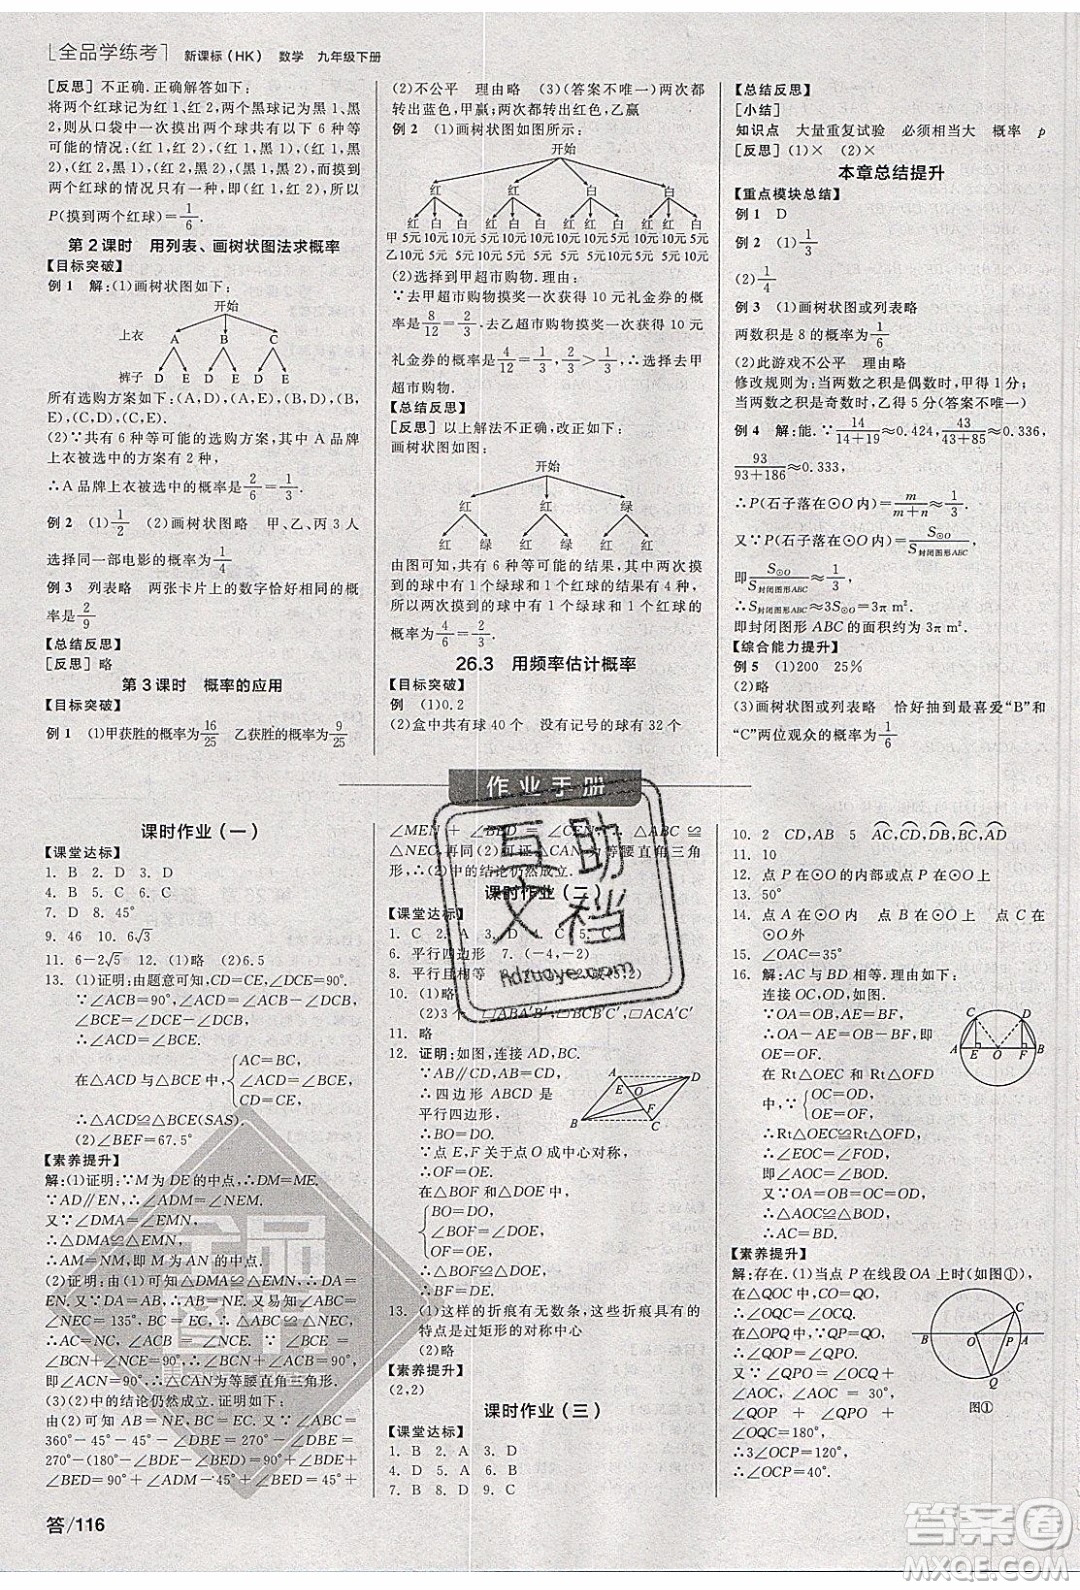 全品学练考 新课标(HK) 数学 九年级下册
[反思] 不正确. 正确解答如下:
将两个红球记为红1、红2,两个黑球记为黑1、黑
2,则从口袋中一次摸出两个球共有以下6种等可
能的情况:(红1,红2),(红1,黑1),(红1,黑2),
(红2,黑1),(红2,黑2),(黑1,黑2),其中摸到
两个红球的情况只有一种,即(红1,红2),所以
P(摸到两个红球)=1/6.
第2课时 用列表、画树状图法求概率
【目标突破】
例1 解:(1)画树状图如下:
开始
上衣 A B C
裤子 D E D E D E
所有选购方案如下:(A,D),(A,E),(B,D),(B,
E),(C,D),(C,E).
(2)∵共有6种等可能的选购方案,其中A品牌
上衣被选中的方案有2种,
∴A品牌上衣被选中的概率是2/6=1/3.
例2 (1)1/2 (2)画树状图略 甲、乙、丙3人
选择同一部电影的概率为1/4
例3 列表略 两张卡片上的数字恰好相同的概
率是2/9
【总结反思】
[反思] 略
第3课时 概率的应用
例1 (1)甲获胜的概率为16/25 乙获胜的概率为9/25
(2)不公平 理由略 (3)(答案不唯一)两次都
转出蓝色,甲赢;两次都转出红色,乙赢
例2 (1)画树状图如图所示:
开始
红 白 白
红 白 白 红 白 白 红 白 白
(2)选择到甲超市购物. 理由:
∵去甲超市购物摸奖一次获得10元礼金券的概
率是8/12=2/3,去乙超市购物摸奖一次获得10元
礼金券的概率是4/12=1/3,2/3>1/3,∴选择去甲
超市购物.
【总结反思】
[反思] 以上解法不正确,改正如下:
画树状图如图.
开始
红 红 绿
红 绿 红 绿 红 红
由图可知,共有6种等可能的结果,其中两次摸
到的球中有1个绿球和1个红球的结果有4种,
所以两次摸到的球中有1个绿球和1个红球的
概率为4/6=2/3.
26.3 用频率估计概率
【目标突破】
例 (1)0.2
(2)盒中共有球40个 没有记号的球有32个
【总结反思】
[小结]
知识点 大量重复试验 必须相当大 概率 p
[反思] (1)× (2)×
本章总结提升
【重点模块总结】
例1 D
例2 (1)1/3
(2)1/4
例3 (1)画树状图或列表略
两数积是8的概率为1/6
(2)此游戏不公平 理由略
修改规则为:当两数之积是偶数时,甲得1分;
当两数之积是奇数时,乙得5分(答案不唯一)
例4 解:能. ∵14/(14+19)≈0.424,43/(43+85)≈0.336,
93/(93+186)≈0.333,
∴P(石子落在⊙O内)=m/(m+n)≈1/3.
又∵P(石子落在⊙O内)=S⊙O/S封闭图形ABC,
即S⊙O/S封闭图形ABC≈1/3,
∴S封闭图形ABC≈3S⊙O=3π m².
即封闭图形ABC的面积约为3π m².
【综合能力提升】
例5 (1)200 25%
(2)略
(3)画树状图或列表略 恰好抽到最喜爱“B”和
“C”两位观众的概率为1/6
作业手册
课时作业(一)
【课堂达标】
1. B 2. D 3. D
4. B 5. C 6. C
7. D 8. 45°
9. 46 10. 6√3
11. 6-2√5 12. (1)略 (2)6.5
13. (1)证明:由题意可知,CD=CE,∠DCE=90°.
∵∠ACB=90°,∴∠ACB=∠DCE,
∴∠ACB-∠DCB=∠DCE-∠DCB,
∴∠ACD=∠BCE.
在△ACD与△BCE中, AC=BC, ∠ACD=∠BCE, CD=CE,
∴△ACD≌△BCE(SAS).
(2)∠BEF=67.5°
【素养提升】
解:(1)证明:∵M为DE的中点,∴DM=EM.
∵AD∥EN,∴∠ADM=∠NEM.
又∵∠DMA=∠EMN,
∴△DMA≌△EMN,
∴AM=MN,即M为AN的中点.
(2)证明:由(1)可知△DMA≌△EMN,∴DA=
EN. ∵DA=AB,∴AB=NE. 又易知∠ABC=
∠NEC=135°,BC=EC,∴△ABC≌△NEC,
∴AC=NC,∠ACB=∠NCE,∴∠ACN=
∠BCE=90°,∴△CAN为等腰直角三角形.
(3)(2)中的结论仍然成立. 证明:
由(2)可知AB=NE,BC=CE. 又∵∠ABC=
360°-45°-45°-∠DBE=270°-∠DBE=
270°-(180°-∠BDE-∠BED)=90°+
∠BDE+∠BED=90°+∠ADM-45°+
∠BED=45°+∠MEN+∠BED=45°+
∠MEN+∠BED=∠CEN,∴△ABC≌
△NEC,再同(2)可证△CAN为等腰直角三角
形,∴(2)的结论仍然成立.
课时作业(二)
【课堂达标】
1. C 2. A 3. A 4. D 5. C
6. 平行四边形 7. (-4,-2)
8. 平行且相等
10. (1)略
(2)3个
11. 略
12. 证明:如图,连接AD,BC.
∵AB∥CD,AB=CD,
∴四边形ABCD是
平行四边形,
∴BO=DO.
∵点E,F关于点O成中心对称,
∴OF=OE.
在△BOF和△DOE中,
BO=DO, ∠BOF=∠DOE, OF=OE,
∴△BOF≌△DOE,
∴BF=DE.
13. (1)这样的折痕有无数条,这些折痕具有的
特点是过矩形的对称中心
(2)略
【素养提升】
(2,2)
课时作业(三)
【课堂达标】
1. B 2. A 3. D
4. D 5. D 6. B
7. B 8. D 9. C
10. 2 CD,AB 5 AC,CD,DB,BC,AD
11. 10
12. 点P在⊙O的内部或点P在⊙O上
13. 50°
14. 点A在⊙O内 点B在⊙O上 点C在
⊙O外
15. ∠OAC=35°
16. 解:AC与BD相等. 理由如下:
连接OC,OD,如图.
∵OA=OB,AE=BF,
∴OA-AE=OB-BF,
即OE=OF.
在Rt△OEC和Rt△OFD
中,∵OE=OF, OC=OD,
∴Rt△OEC≌Rt△OFD,
∴∠EOC=∠FOD,
即∠AOC=∠BOD,
∴AC=BD.
【素养提升】
解:存在. (1)当点P在线段OA上时(如图①),
在△QOC中,OC=OQ,
∴∠OQC=∠OCQ.
在△OPQ中,QP=QO,
∴∠QOP=∠QPO.
又∵∠QPO=∠OCQ+
∠AOC,∠AOC=30°,
∠QOP+∠QPO+∠OQC=180°,
∴3∠OCP=120°,
∴∠OCP=40°.
图①
答/116
互助文档
Hdzuoye.com
全品智能
答案圈
MXQE.COM